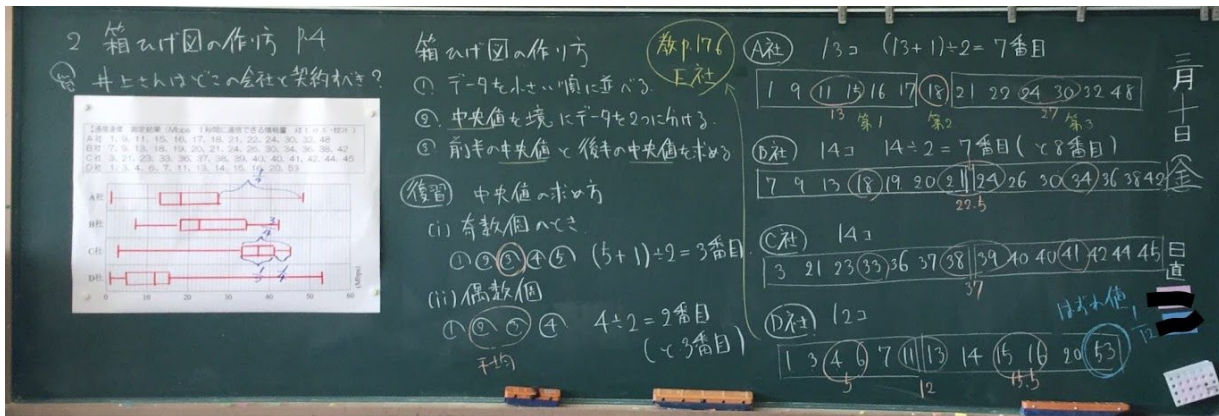 2 箱ひげ図の作り方 P.4
井上さんはどこの会社と契約すべき?
【通信速度 測定結果(Mbps
A社 1, 9, 11, 15, 16, 17, 18, 21, 22, 24, 30, 32, 48
B社 7, 9, 13, 18, 19, 20, 21, 24, 26, 30, 34, 36, 38, 42
C社 3, 21, 23, 33, 36, 37, 38, 39, 40, 40, 41, 42, 44, 45
D社 1, 3, 4, 6, 7, 11, 13, 14, 15, 16, 20, 53
A社
B社
C社
D社
0 10 20 30 40 50 60
(Mbps)
箱ひげ図の作り方
① データを小さい順に並べる.
② 中央値を境にデータを2つに分ける.
③ 前半の中央値と後半の中央値を求める
復習 中央値の求め方
(i) 奇数個のとき
① ② ③ ④ ⑤ (5+1)÷2=3番目
(ii) 偶数個
① ② ③ ④ 4÷2=2番目
(と3番目)
平均
教P.176
E社
A社 13コ (13+1)÷2=7番目
1 9 11 15 16 17 18 21 22 24 30 32 48
13 27
第1 第2 第3
B社 14コ 14÷2=7番目(と8番目)
7 9 13 18 19 20 21 24 26 30 34 36 38 42
22.5
C社 14コ
3 21 23 33 36 37 38 39 40 40 41 42 44 45
37
D社 12コ
1 3 4 6 7 11 13 14 15 16 20 53
5 12 15.5
はずれ値
三月十日(金)
日直